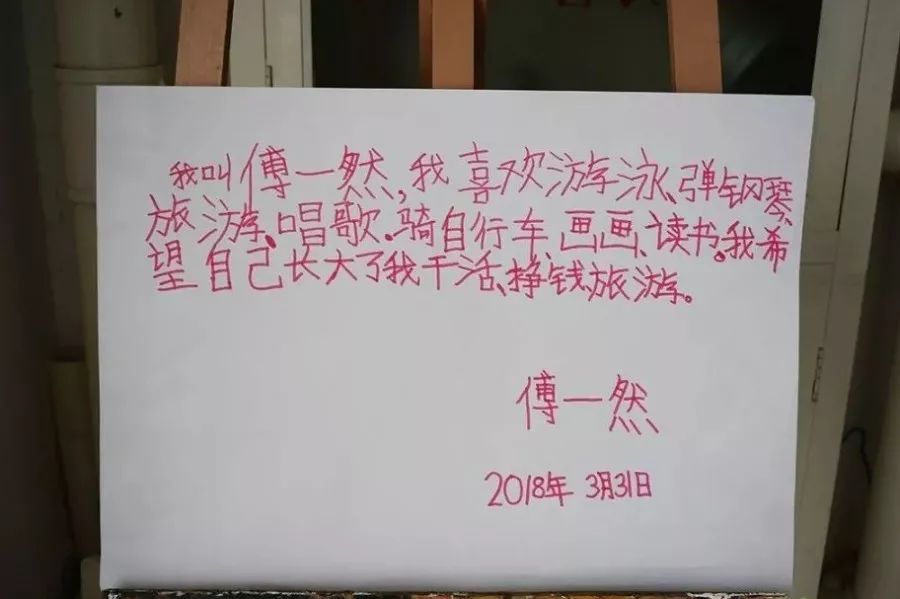 我叫傅一然,我喜欢游泳、弹钢琴、
旅游、唱歌、骑自行车、画画、读书。我希
望自己长大了我干活、挣钱、旅游。
傅一然
2018年 3月31日